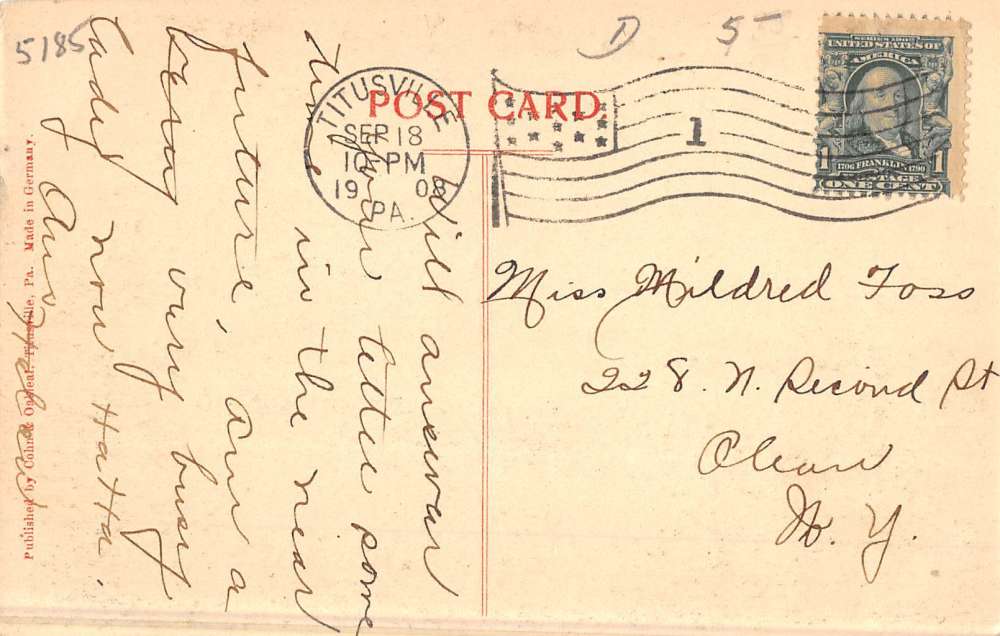 5185
D 5-
POST CARD.
TITUSVILLE
SEP 18
10-PM
1908
PA.
1
SERIES 1902
UNITED STATES OF
AMERICA
1 1706 FRANKLIN 1790 1
POSTAGE
ONE CENT
Will answar
your letter some
time in the near
future, am a
very busy
now Ha Ha.
Miss Mildred Foss
228. N. Second St
Olean
N. Y.
Published by Cohn & Titusville, Pa. Made in Germany.